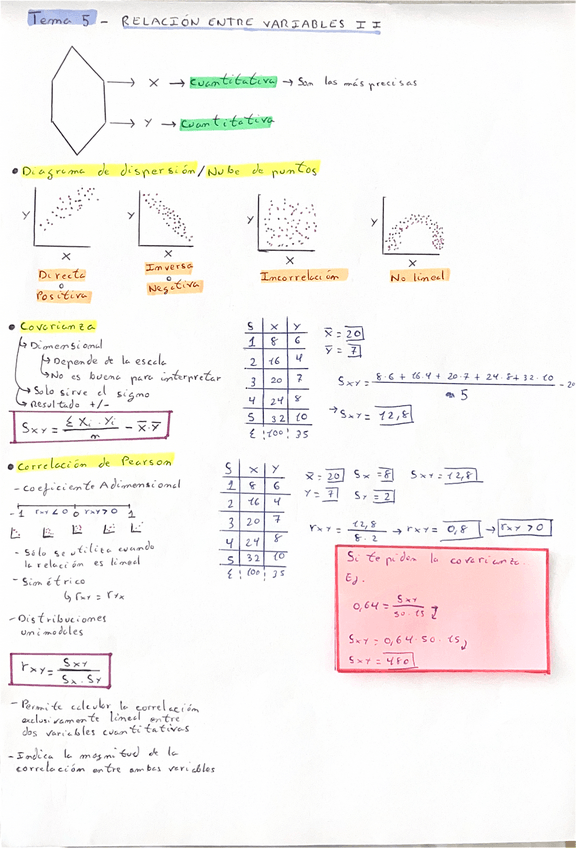 Tema 5 - RELACIÓN ENTRE VARIABLES II
→ X → Cuantitativa → Son las más precisas
→ Y → Cuantitativa
• Diagrama de dispersión / Nube de puntos
Y X
Y X
Y X
Y X
Directa o Positiva
Inversa o Negativa
Incorrelación
No lineal
• Covarianza
→ Dimensional
→ Depende de la escala
→ No es buena para interpretar
→ Solo sirve el signo
→ Resultado +/-
Sxy = Σ Xi · Yi / n - X̄·Ȳ
S X Y
1 8 6
2 16 4
3 20 7
4 24 8
5 32 10
Σ 100 35
X̄ = 20
Ȳ = 7
Sxy = 8·6 + 16·4 + 20·7 + 24·8 + 32·10 / 5 - 20
→ Sxy = 12,8
• Correlación de Pearson
- Coeficiente Adimensional
-1 rxy < 0 0 rxy > 0 1
- Sólo se utiliza cuando
la relación es lineal
- Simétrico
↳ rxy = ryx
- Distribuciones
unimodales
rxy = Sxy / Sx · Sy
- Permite calcular la correlación
exclusivamente lineal entre
dos variables cuantitativas
- Indica la magnitud de la
correlación entre ambas variables
S X Y
1 8 6
2 16 4
3 20 7
4 24 8
5 32 10
Σ 100 35
X̄ = 20 Sx = 8 Sxy = 12,8
Y = 7 Sy = 2
rxy = 12,8 / 8 · 2 → rxy = 0,8 → rxy > 0
Si te piden la covarianza.
Ej.
0,64 = Sxy / 50 · 15
Sxy = 0,64 · 50 · 15
Sxy = 480